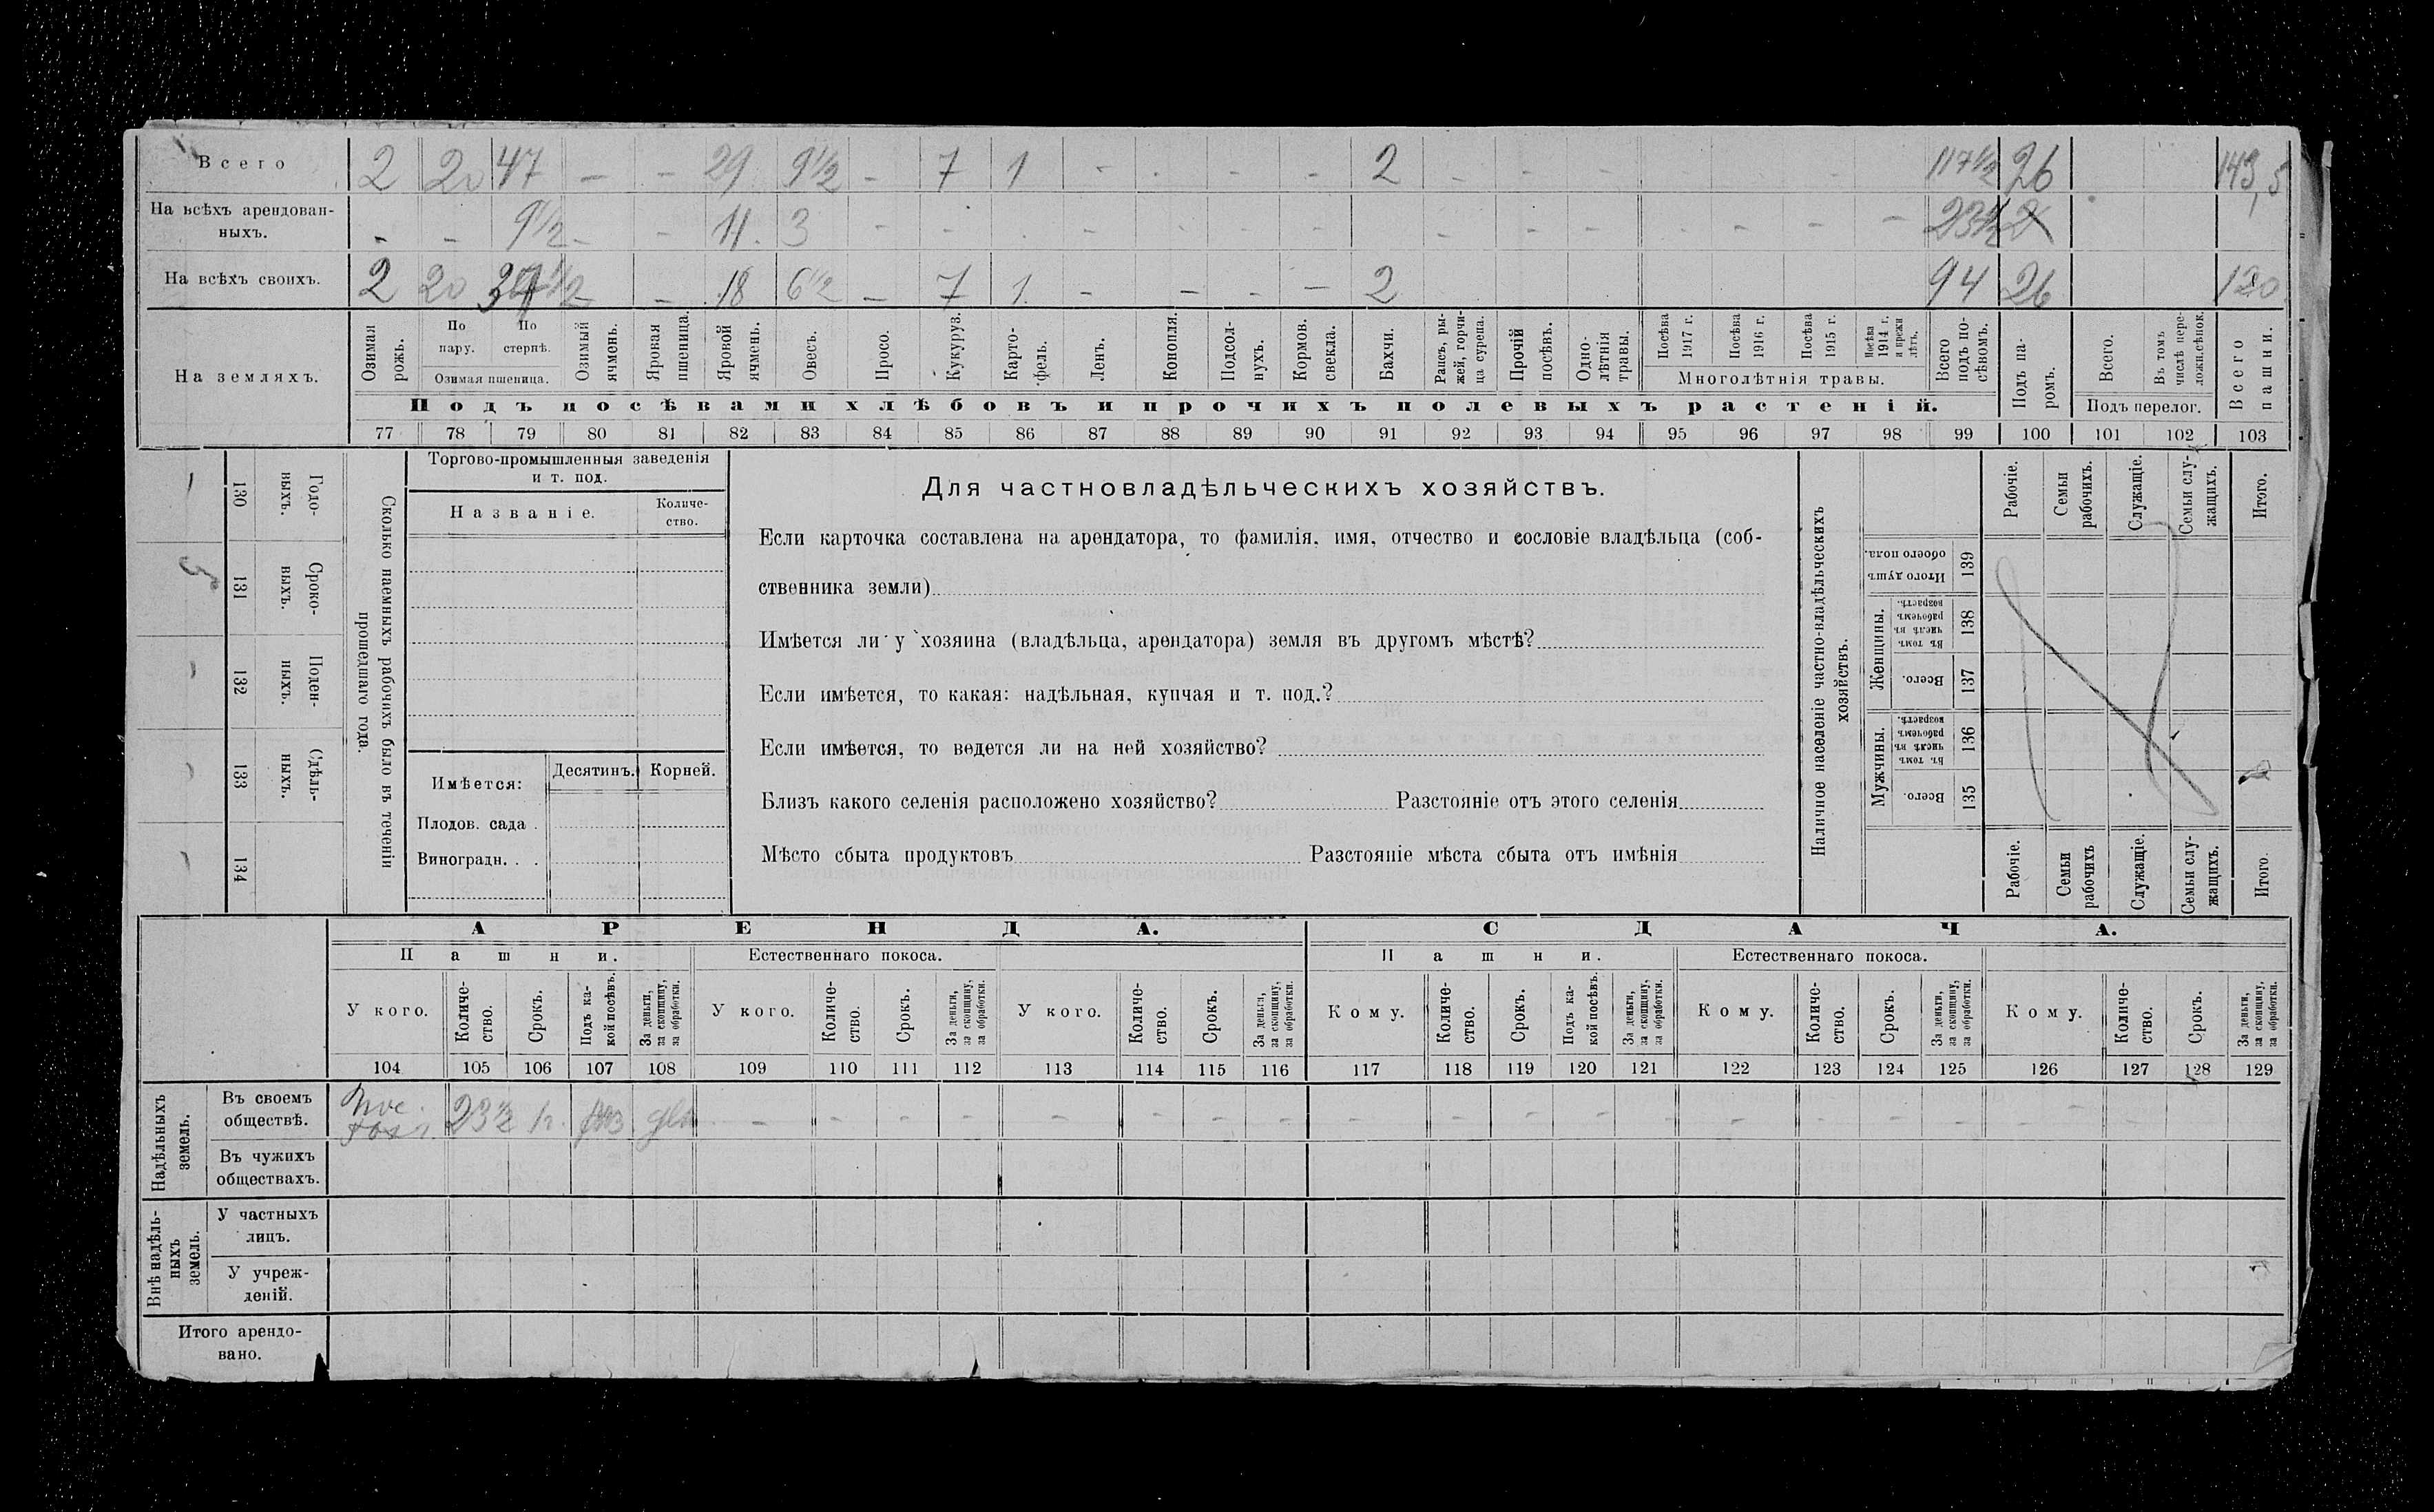 Всего 2 20 47 – – 29 9½ – 7 1 - - - - 2 - - - - 117½ 26 143,5
На всѣхъ арендован-
ныхъ. - - 9½ - - 11 3 - - - - - - - - - - - - - - 23½
На всѣхъ своихъ. 2 20 – – 18 6½ – 7 1 - - - - 2 94 26 120
На земляхъ.
Озимая рожь.
По пару.
По стернѣ.
Озимая пшеница.
Озимый ячмень.
Яровая пшеница.
Яровой ячмень.
Овесъ.
Просо.
Кукуруз.
Карто-
фель.
Ленъ.
Конопля.
Подсол-
нухъ.
Кормов. свекла.
Бахчи.
Рапсъ, ры-
жей, горчи-
ца сурепа.
Прочій посѣвъ.
Одно-
лѣтнія травы.
Посѣва 1917 г.
Посѣва 1916 г.
Посѣва 1915 г.
Посѣва 1914 г. и прежн лѣтъ.
Многолѣтнія травы.
Всего подъ по-
сѣвомъ.
Подъ па-
ромъ.
Всего.
Въ томъ числѣ пере-
ложн.сѣнок.
Подъ перелог.
Всего пашни.
Подъ посѣвами хлѣбовъ и прочихъ полевыхъ растеній.
77 78 79 80 81 82 83 84 85 86 87 88 89 90 91 92 93 94 95 96 97 98 99 100 101 102 103
Сколько наемныхъ рабочихъ было въ теченіи
прошедшаго года.
Годо-
выхъ.
130
Сроко-
выхъ.
131
5
Поден-
ныхъ.
132
Сдѣль-
ныхъ.
133
134
Торгово-промышленныя заведенія
и т. под.
Названіе.
Количе-
ство.
Имѣется:
Десятинъ.
Корней.
Плодов. сада .
Виноградн. . .
Для частновладѣльческихъ хозяйствъ.
Если карточка составлена на арендатора, то фамилія, имя, отчество и сословіе владѣльца (соб-
ственника земли)
Имѣется ли у хозяина (владѣльца, арендатора) земля въ другомъ мѣстѣ?
Если имѣется, то какая: надѣльная, купчая и т. под.?
Если имѣется, то ведется ли на ней хозяйство?
Близъ какого селенія расположено хозяйство? Разстояніе отъ этого селенія
Мѣсто сбыта продуктовъ Разстояніе мѣста сбыта отъ имѣнія
Наличное населеніе частно-владѣльческихъ
хозяйствъ.
Рабочіе.
Семьи рабочихъ.
Служащіе.
Семьи слу-
жащихъ.
Итого.
Итого душъ обоего пола.
139
Женщины.
Въ томъ числѣ въ рабочемъ возрастѣ.
138
Всего.
137
Мужчины.
Въ томъ числѣ въ рабочемъ возрастѣ.
136
Всего.
135
Рабочіе.
Семьи рабочихъ
Служащіе.
Семьи слу-
жащихъ.
Итого.
АРЕНДА. СДАЧА.
Пашни. Естественнаго покоса. Пашни. Естественнаго покоса.
У кого.
Количе-
ство.
Срокъ.
Подъ ка-
кой посѣвъ.
За деньги, за скопщину, за обработки.
У кого.
Количе-
ство.
Срокъ.
За деньги, за скопщину, за обработки.
У кого.
Количе-
ство.
Срокъ.
За деньги, за скопщину, за обработки.
Кому.
Количе-
ство.
Срокъ.
Подъ ка-
кой посѣвъ.
За деньги, за скопщину, за обработки.
Кому.
Количе-
ство.
Срокъ.
За деньги, за скопщину, за обработки.
Кому.
Количе-
ство.
Срокъ.
За деньги, за скопщину, за обработки.
104 105 106 107 108 109 110 111 112 113 114 115 116 117 118 119 120 121 122 123 124 125 126 127 128 129
Надѣльныхъ
земель.
Въ своемъ
обществѣ. 23½
Въ чужихъ
обществахъ.
Внѣ надѣль-
ныхъ
земель.
У частныхъ
лицъ.
У учреж-
деній.
Итого арендо-
вано.